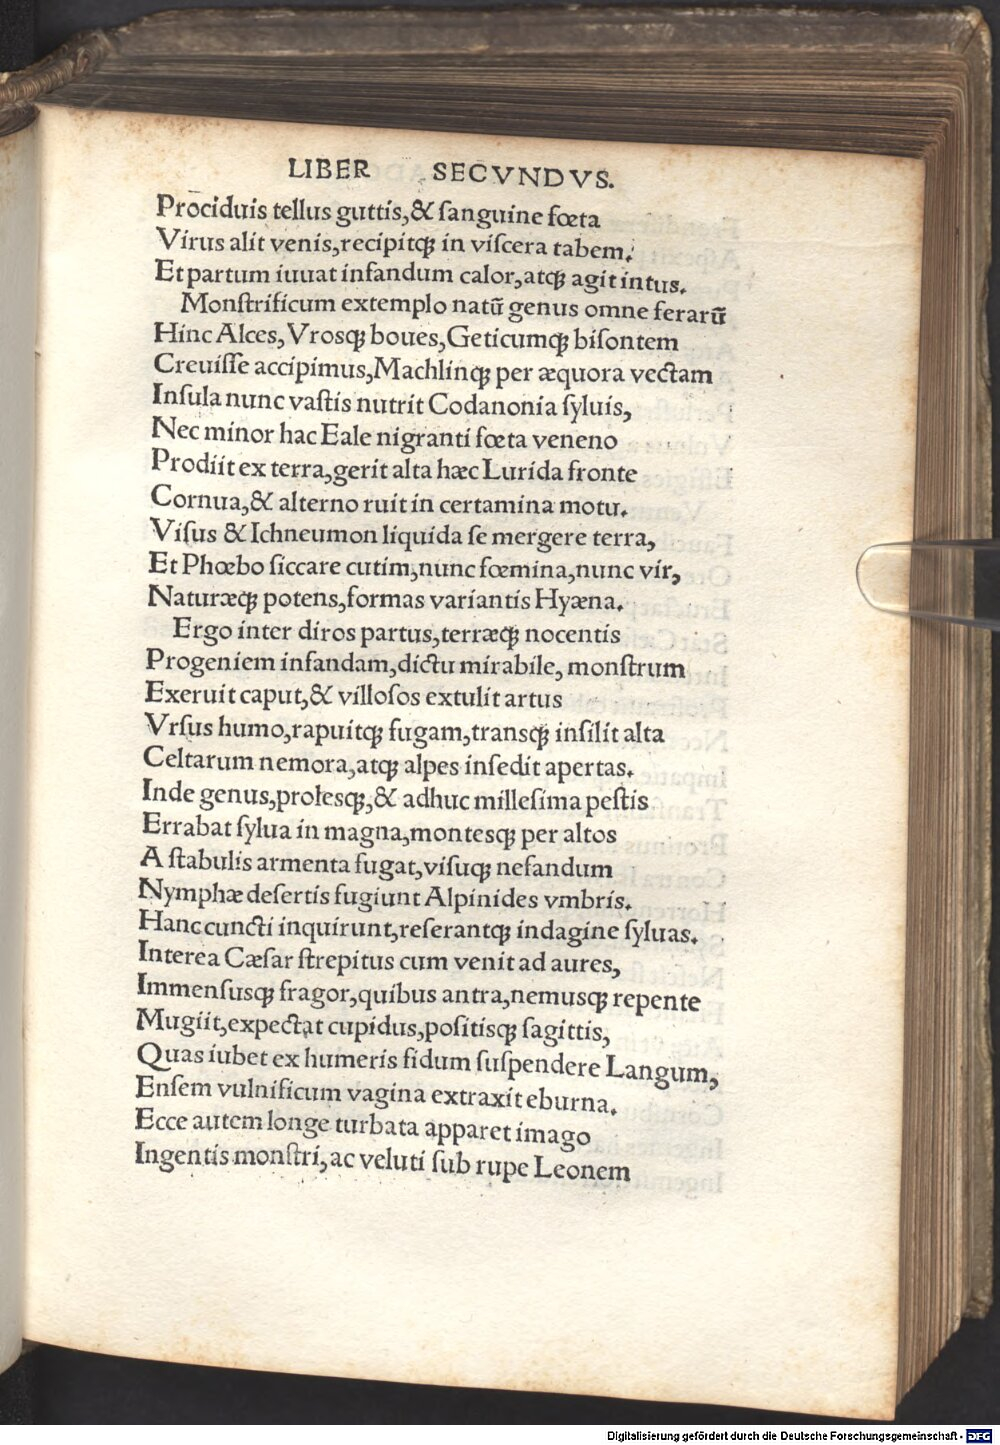 LIBER SECVNDVS.
Prociduis tellus guttis,& ſanguine fœta
Virus alit venis,recipitq; in viſcera tabem.
Et partum iuuat infandum calor,atq; agit intus.
Monſtrificum extemplo natū genus omne ferarū
Hinc Alces,Vrosq; boues,Geticumq; biſontem
Creuiſſe accipimus,Machlinq; per æquora vectam
Inſula nunc vaſtis nutrit Codanonia ſyluis,
Nec minor hac Eale nigranti fœta veneno
Prodiit ex terra,gerit alta hæc Lurida fronte
Cornua,& alterno ruit in certamina motu.
Viſus & Ichneumon liquida ſe mergere terra,
Et Phœbo ſiccare cutim,nunc fœmina,nunc vir,
Naturæq; potens,formas variantis Hyæna.
Ergo inter diros partus,terræq; nocentis
Progeniem infandam,dictu mirabile, monſtrum
Exeruit caput,& villoſos extulit artus
Vrſus humo,rapuitq; fugam,transq; inſilit alta
Celtarum nemora,atq; alpes inſedit apertas.
Inde genus,prolesq;,& adhuc milleſima peſtis
Errabat ſylua in magna,montesq; per altos
A ſtabulis armenta fugat,viſuq; nefandum
Nymphæ deſertis fugiunt Alpinides vmbris.
Hanc cuncti inquirunt,reſerantq; indagine ſyluas.
Interea Cæſar ſtrepitus cum venit ad aures,
Immenſusq; fragor,quibus antra,nemusq; repente
Mugiit,expectat cupidus,poſitisq; ſagittis,
Quas iubet ex humeris fidum ſuſpendere Langum,
Enſem vulnificum vagina extraxit eburna.
Ecce autem longe turbata apparet imago
Ingentis monſtri, ac veluti ſub rupe Leonem
Digitalisierung gefördert durch die Deutsche Forschungsgemeinschaft - DFG